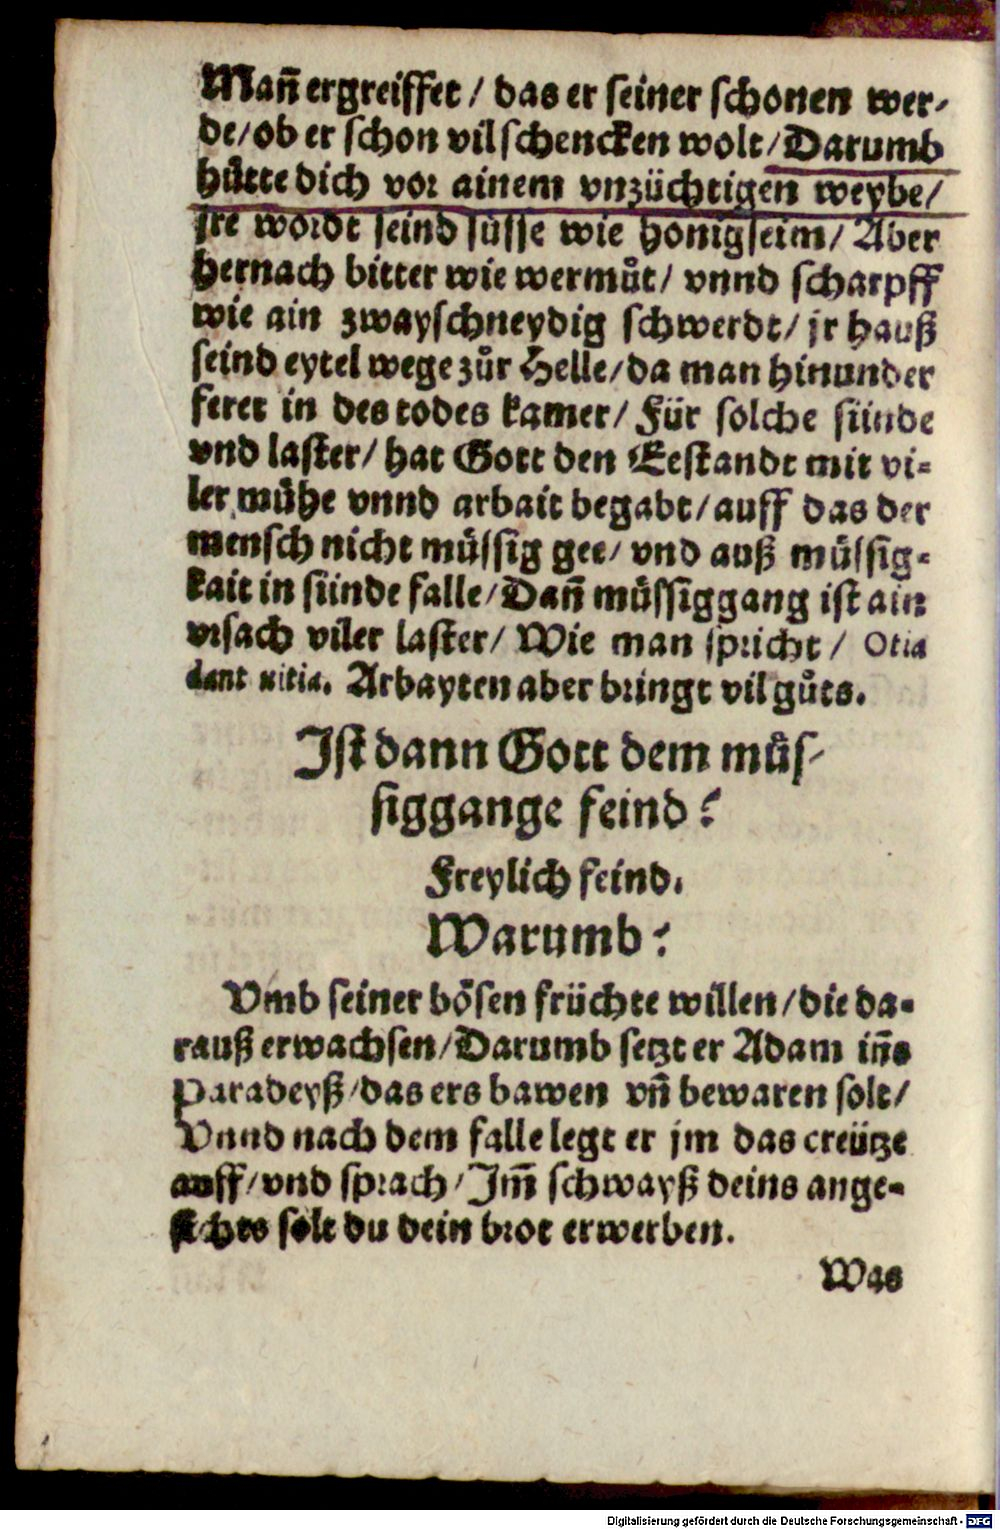 Mañ ergreiffet / das er seiner schonen wer-
de / ob er schon vil schencken wolt / Darumb
hůtte dich vor ainem vnzüchtigen weybe /
jre wordt seind süsse wie honigseim / Aber
hernach bitter wie wermůt / vnnd scharpff
wie ain zwayschneydig schwerdt / jr hauß
seind eytel wege zůr Helle / da man hinunder
feret in des todes kamer / Für solche sünde
vnd laster / hat Gott den Eestandt mit vi-
ler můhe vnnd arbait begabt / auff das der
mensch nicht můssig gee / vnd auß můssig-
kait in sünde falle / Dañ můssiggang ist ain
vrsach viler laster / Wie man spricht / Otia
dant uitia. Arbayten aber bringt vil gůts.
Ist dann Gott dem můs-
siggange feind?
Freylich feind.
Warumb?
Vmb seiner bösen früchte willen / die da-
rauß erwachsen / Darumb setzt er Adam iñs
Paradeyß / das ers bawen vñ bewaren solt /
Vnnd nach dem falle legt er jm das creütze
auff / vnd sprach / Im̃ schwayß deins ange-
sichts solt du dein brot erwerben.
Was
Digitalisierung gefördert durch die Deutsche Forschungsgemeinschaft - DFG